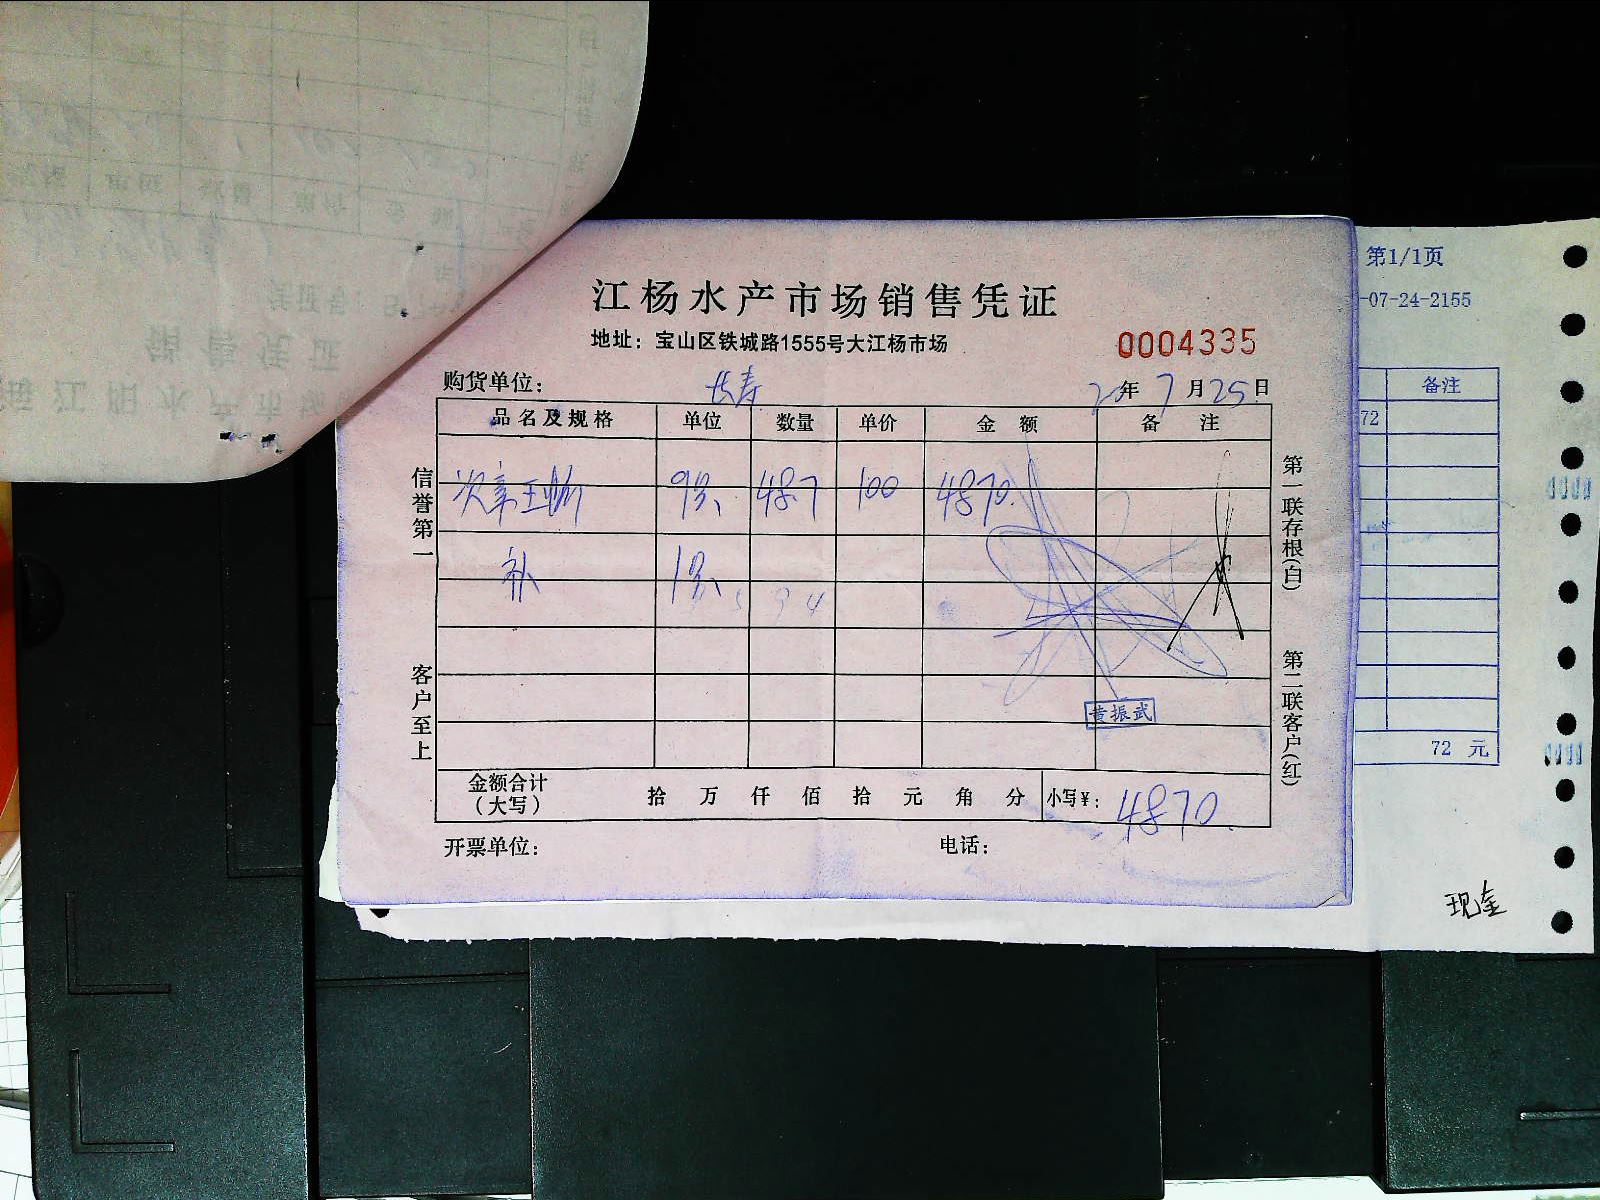 江杨水产市场销售凭证
地址：宝山区铁城路1555号大江杨市场
0004335
购货单位： 长寿 20年7月25日
品名及规格 单位 数量 单价 金额 备注
48.7 100 4870.
补
5 9 4
黄振武
金额合计（大写） 拾 万 仟 佰 拾 元 角 分 小写￥： 4870.
开票单位： 电话：
信誉第一
客户至上
第一联存根(白)
第二联客户(红)
第1/1页
-07-24-2155
备注
72
72 元